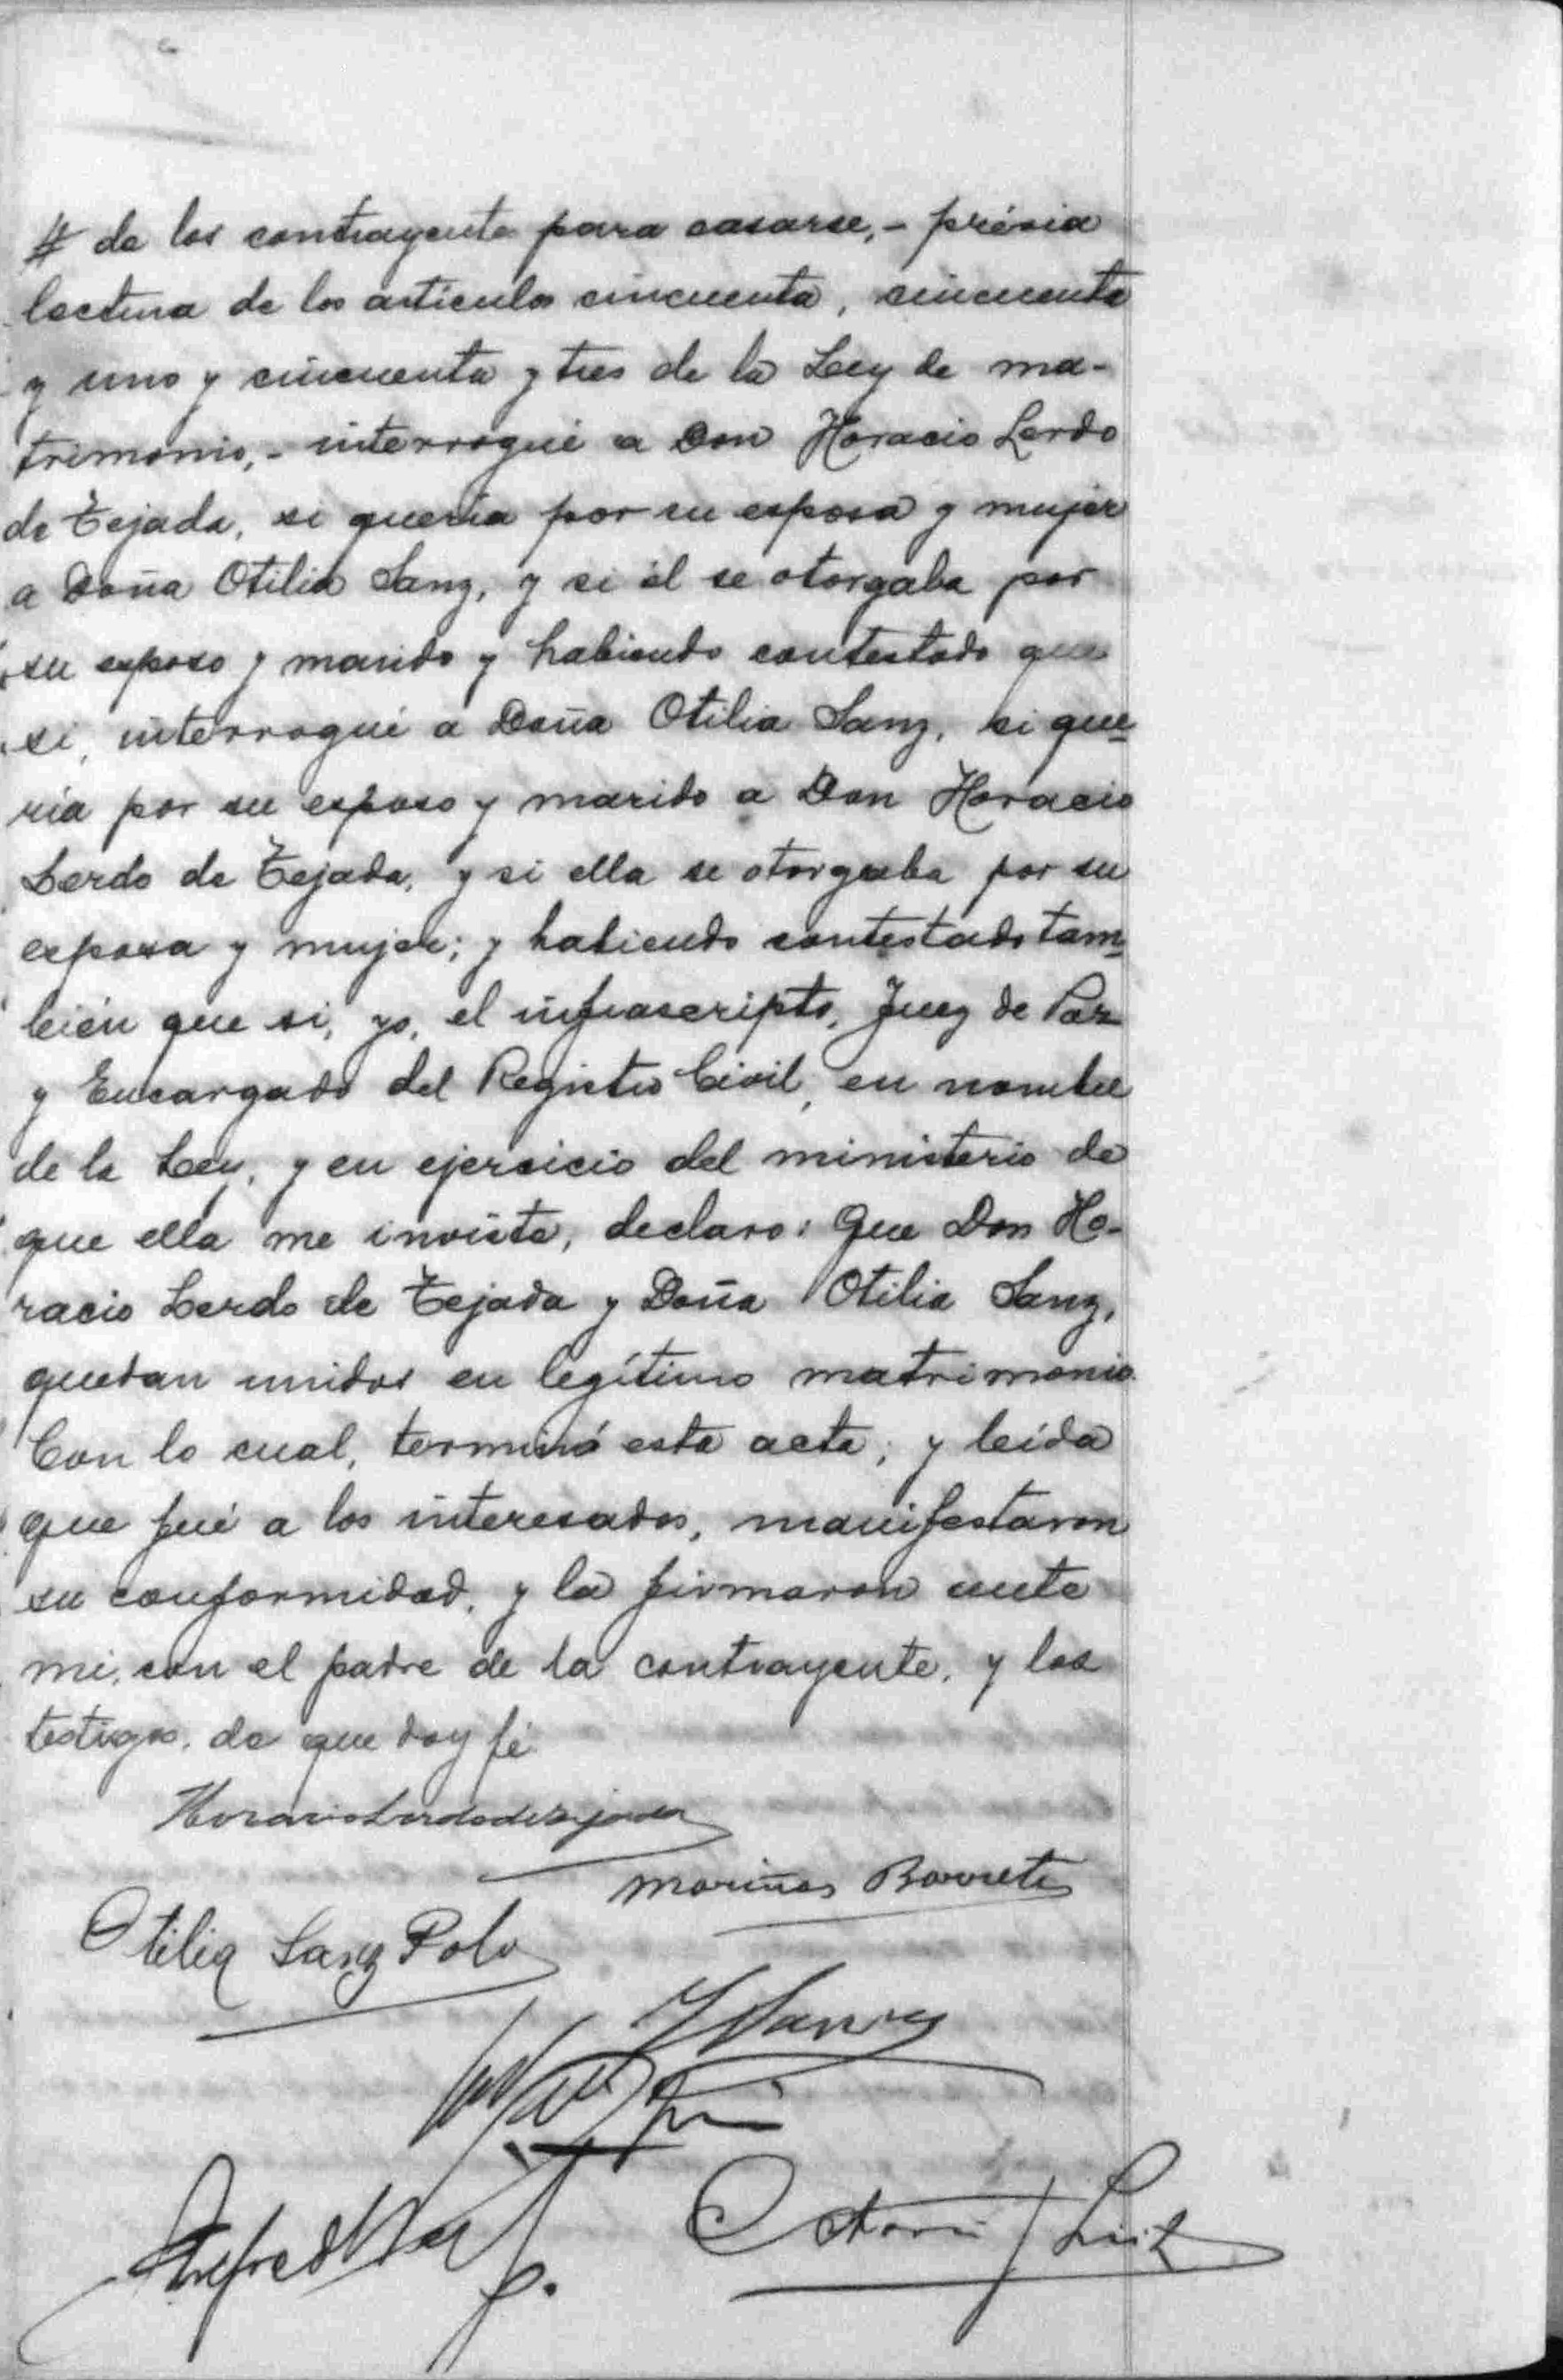 # de los contrayente para casarse,- prévia
lectura de los artículos cincuenta, cincuenta
y uno y cincuenta y tres de la Ley de ma-
trimonio,- interrogué a Don Horacio Lerdo
de Tejada, si quería por su esposa y mujer
a Doña Otilia Sanz, y si él se otorgaba por
su esposo y marido y habiendo contestado que
si, interrogué a Doña Otilia Sanz, si que-
ría por su esposo y marido a Don Horacio
Lerdo de Tejada, y si ella se otorgaba por su
esposa y mujer; y habiendo contestado tam-
bién que si, yo, el infrascripto, Juez de Paz
y Encargado del Registro Civil, en nombre
de la Ley, y en ejercicio del ministerio de
que ella me inviste, declaro: Que Don Ho-
racio Lerdo de Tejada y Doña Otilia Sanz,
quedan unidos en legítimo matrimonio.
Con lo cual, terminó esta acta; y leída
que fué a los interesados, manifestaron
su conformidad, y la firmaron ante
mi, con el padre de la contrayente, y los
testigos, de que doy fé
Horacio Lerdo de Tejada
Mariños Barreto
Otilia Sanz Polo
Sanz
Alfredo
Octavio